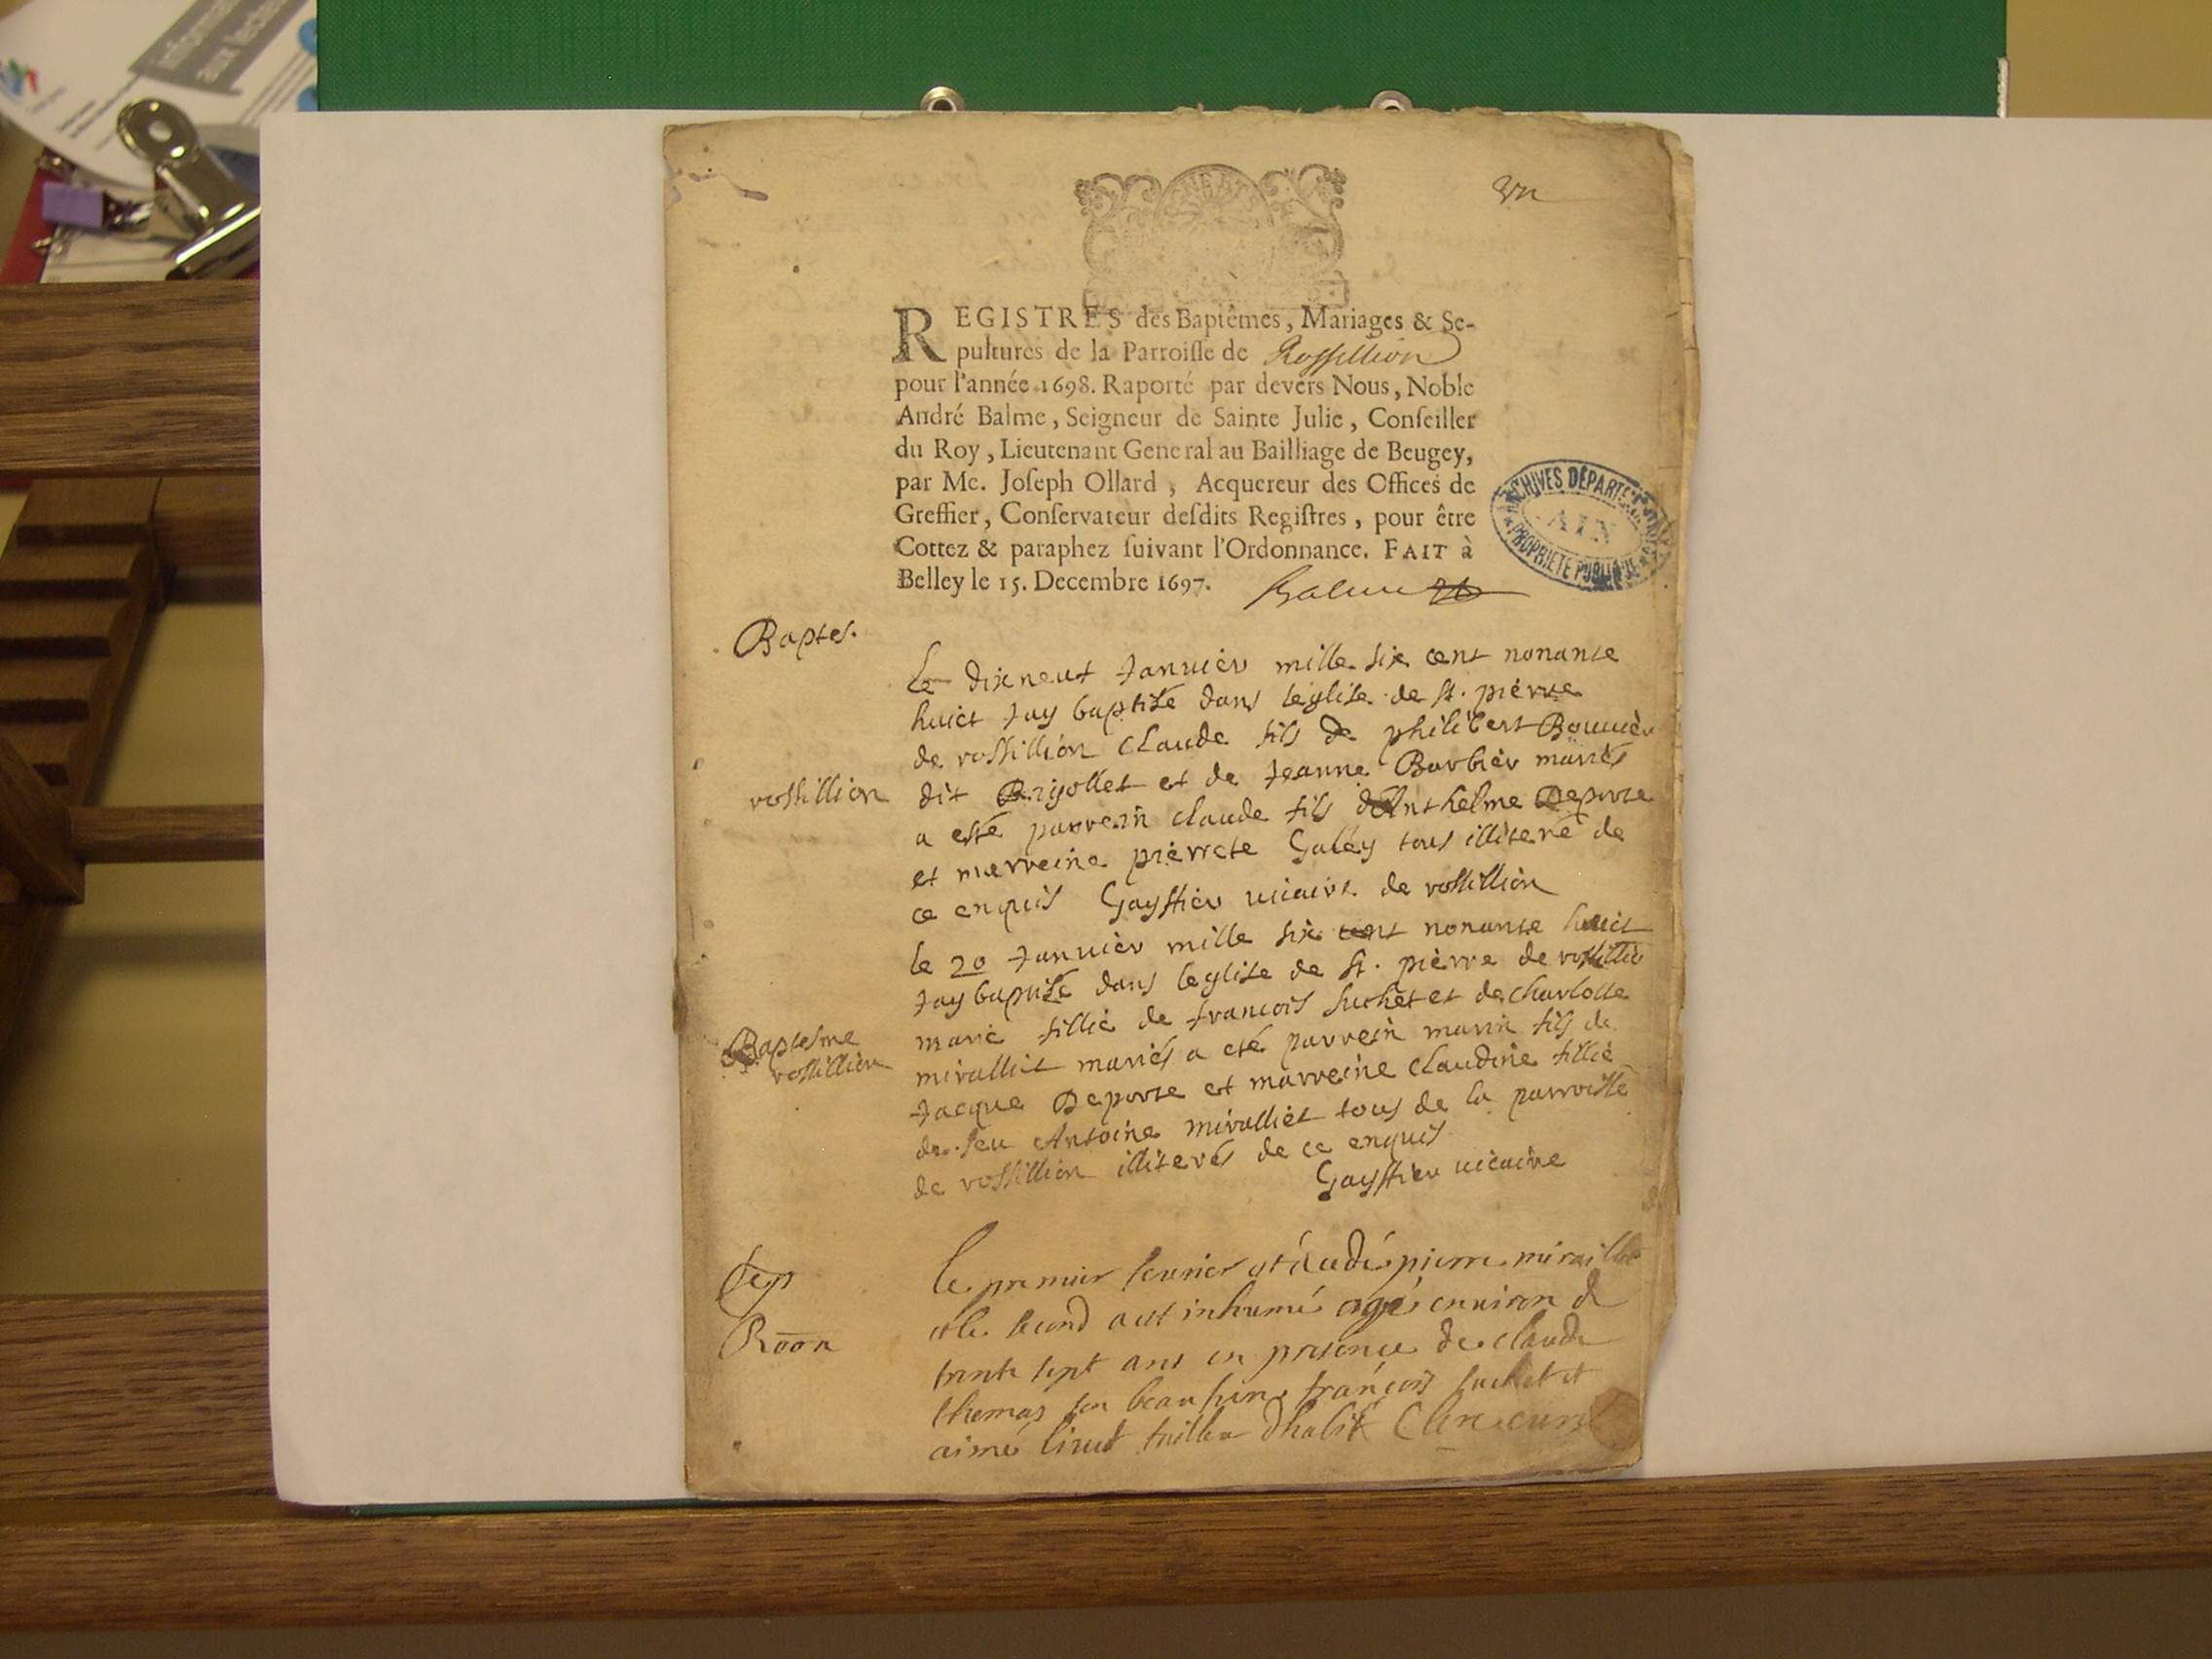 REGISTRES des Baptêmes, Mariages & Se-
pultures de la Parroisse de Rossillion
pour l'année 1698. Raporté par devers Nous, Noble
André Balme, Seigneur de Sainte Julie, Conseiller
du Roy, Lieutenant General au Bailliage de Beugey,
par Me. Joseph Ollard, Acquereur des Offices de
Greffier, Conservateur desdits Registres, pour être
Cottez & paraphez suivant l'Ordonnance. FAIT à
Belley le 15. Decembre 1697. Balme
ARCHIVES DÉPARTEMENTALES
AIN
PROPRIÉTÉ PUBLIQUE
Baptes.
Le dixneuf Janvier mille six cent nonante
huict Jay baptisé dans leglise de st. pierre
de rossillion Claude fils de philibert Bouvier
rossillion
dit Brigollet et de Jeanne Barbier mariés
a esté parrein claude fils dAnthelme Deporte
et marreine pierrete Galley tous illiteré de
ce enquis Gaystier vicaire de rossillion
le 20 Janvier mille six cent nonante huict
Jay baptisé dans leglise de st. pierre de rossillio
Baptesme
rossillion
marie fillie de francois suchet et de Charlotte
miralliet mariés a eté parrein marin fils de
Jacque Deporte et marreine claudine fillie
de feu Antoine miralliet tous de la parroisse
de rossillion illiterés de ce enquis
Gaystier vicaire
Sep
Roon
le premier fevrier est decedé pierre miraillet
et le second a est inhumé agé environ de
trente sept ans en presence de claude
thomas son beau frere françois suchet et
aimé